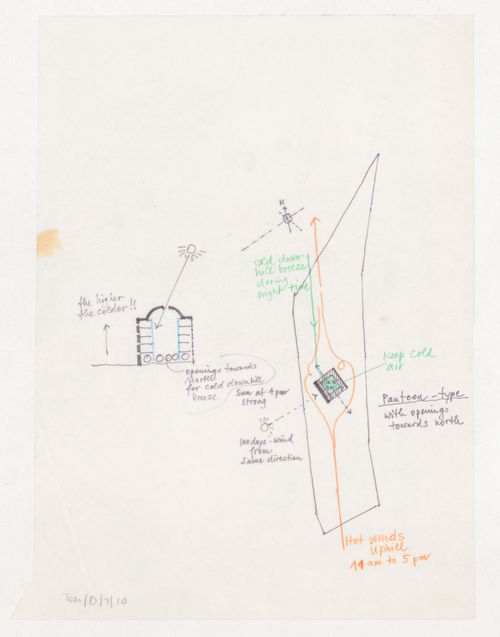 N
cold down-
hill breeze
during
night time
the higher
the colder!!
openings towards
north
for cold downhill
breeze
Sun at 4 pm
strong
keep cold
air
Panteon-type
with openings
towards north
100days-wind
from
same direction
Hot winds
Uphill
11 am to 5 pm